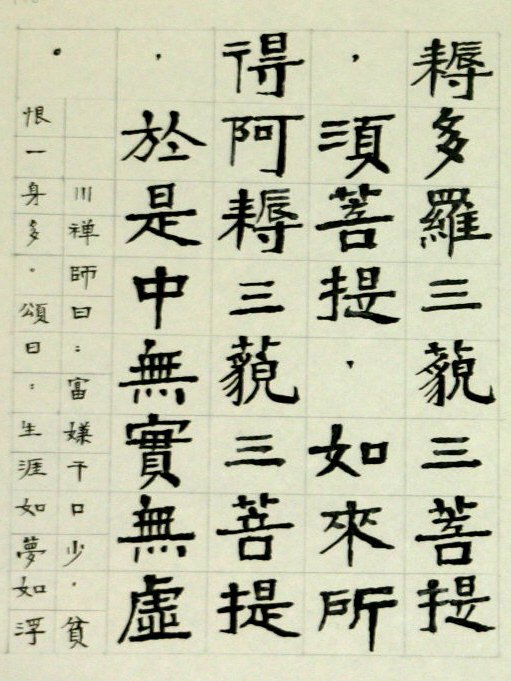 耨多羅三藐三菩提
，須菩提，如來所
得阿耨三藐三菩提
，於是中無實無虛
。
川禅師曰：富嫌千口少，貧
恨一身多。頌曰：生涯如夢如浮